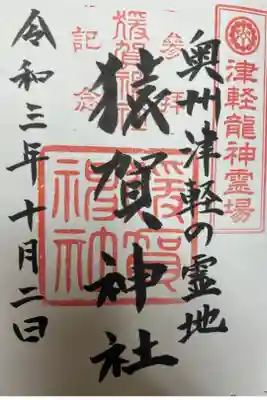 津軽龍神霊場
奥州津軽の霊地
参拝
猿賀神社
記念
猿賀神社
猿賀
神社
令和三年十月二日